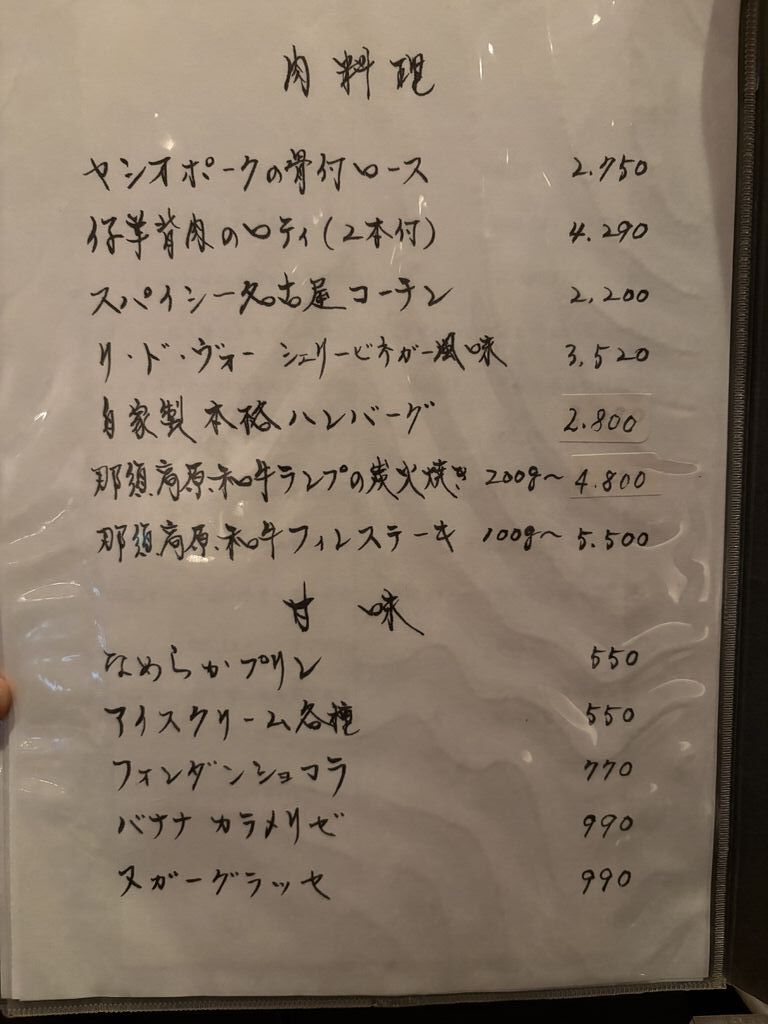 肉料理
ヤシオポークの骨付ロース 2.750
仔羊背肉のロティ(2本付) 4.290
スパイシー名古屋コーチン 2,200
リ・ド・ヴォー シェリービネガー風味 3,520
自家製本格ハンバーグ 2.800
那須高原和牛ランプの炭火焼き 200g〜 4.800
那須高原和牛フィレステーキ 100g〜 5.500
甘味
なめらかプリン 550
アイスクリーム各種 550
フォンダンショコラ 770
バナナカラメリゼ 990
ヌガーグラッセ 990